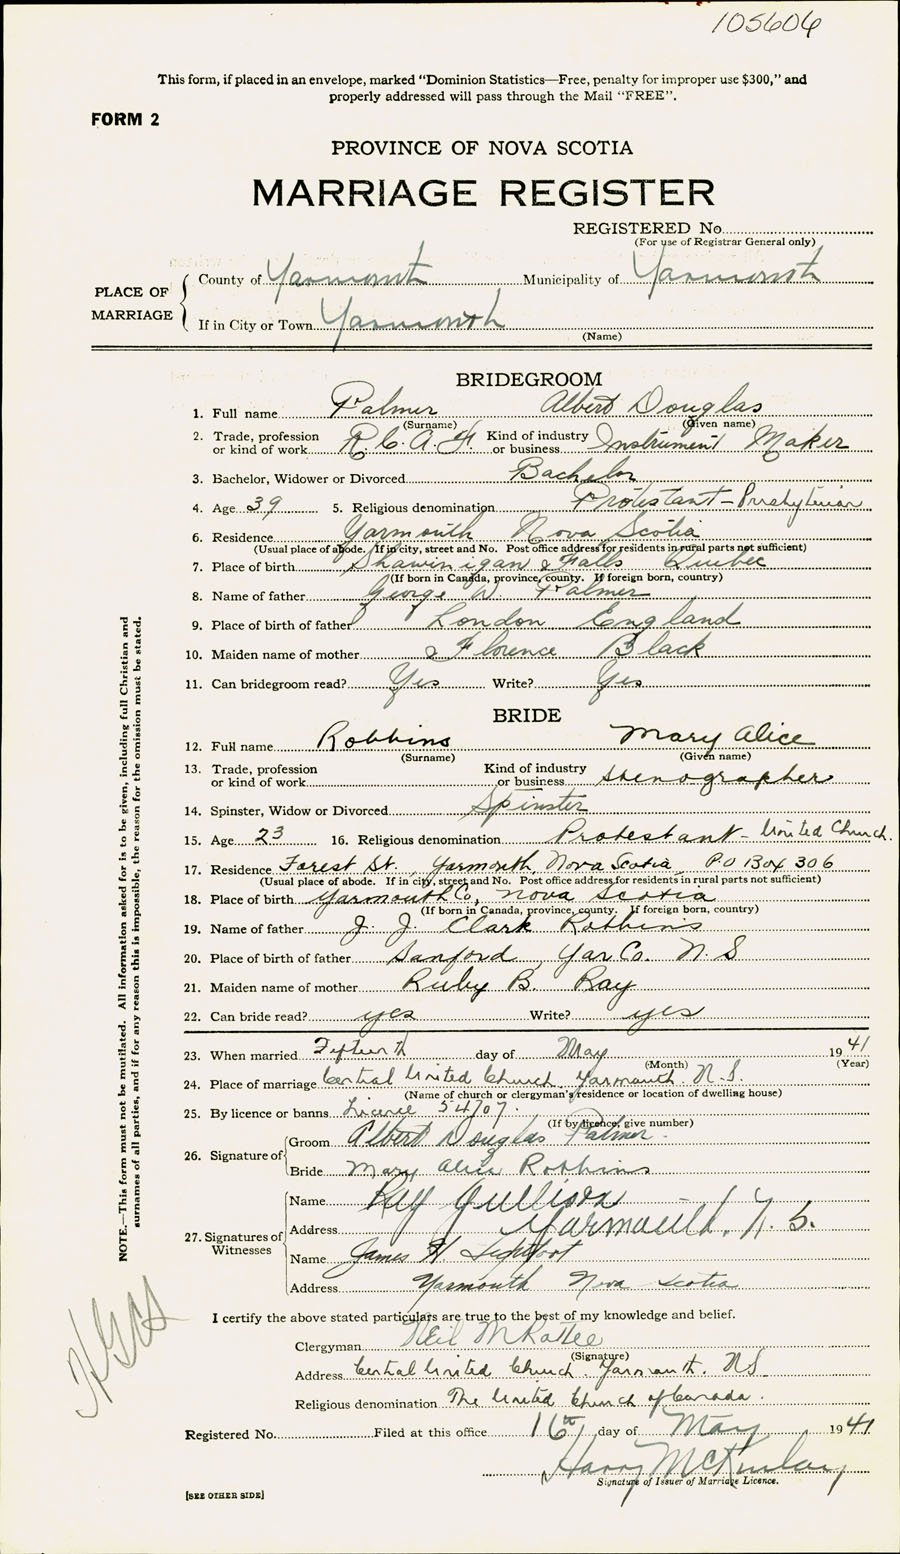 105606
This form, if placed in an envelope, marked "Dominion Statistics—Free, penalty for improper use $300," and
properly addressed will pass through the Mail "FREE".
FORM 2
PROVINCE OF NOVA SCOTIA
MARRIAGE REGISTER
REGISTERED No
(For use of Registrar General only)
PLACE OF MARRIAGE
County of Yarmouth Municipality of Yarmouth
If in City or Town Yarmouth
(Name)
BRIDEGROOM
1. Full name Palmer Albert Douglas
(Surname) (Given name)
2. Trade, profession or kind of work R.C.A.F. Kind of industry or business Instrument Maker
3. Bachelor, Widower or Divorced Bachelor
4. Age 39 5. Religious denomination Protestant - Presbyterian
6. Residence Yarmouth Nova Scotia
(Usual place of abode. If in city, street and No. Post office address for residents in rural parts not sufficient)
7. Place of birth Shawinigan Falls Quebec
(If born in Canada, province, county. If foreign born, country)
8. Name of father George W. Palmer
9. Place of birth of father London England
10. Maiden name of mother Florence Black
11. Can bridegroom read? Yes Write? Yes
BRIDE
12. Full name Robbins Mary Alice
(Surname) (Given name)
13. Trade, profession or kind of work Kind of industry or business Stenographer
14. Spinster, Widow or Divorced Spinster
15. Age 23 16. Religious denomination Protestant - United Church.
17. Residence Forest St., Yarmouth, Nova Scotia P.O Box 306
(Usual place of abode. If in city, street and No. Post office address for residents in rural parts not sufficient)
18. Place of birth Yarmouth Co, Nova Scotia
(If born in Canada, province, county. If foreign born, country)
19. Name of father J. J. Clark Robbins
20. Place of birth of father Sanford, Yar Co. N. S
21. Maiden name of mother Ruby B. Ray
22. Can bride read? yes Write? yes
23. When married Fifteenth day of May 1941
(Month) (Year)
24. Place of marriage Central United Church, Yarmouth. N.S.
(Name of church or clergyman's residence or location of dwelling house)
25. By licence or banns Licence 54707.
(If by licence, give number)
26. Signature of Groom Albert Douglas Palmer.
Bride Mary Alice Robbins
27. Signatures of Witnesses
Name Ray Gullison
Address Yarmouth, N. S.
Name James H Lightfoot
Address Yarmouth Nova Scotia
I certify the above stated particulars are true to the best of my knowledge and belief.
Clergyman Neil
(Signature)
Address Central United Church, Yarmouth. NS
Religious denomination The United Church of Canada.
Registered No. Filed at this office 16th day of May 1941
Harry McKinlay
Signature of Issuer of Marriage Licence.
[SEE OTHER SIDE]
NOTE.—This form must not be mutilated. All information asked for is to be given, including full Christian and
surnames of all parties, and if for any reason this is impossible, the reason for the omission must be stated.